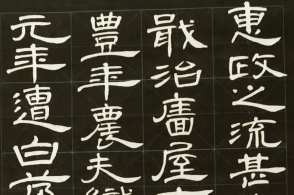 惠政之流甚
戢治廧屋
豐年農夫織
元年遭白茅